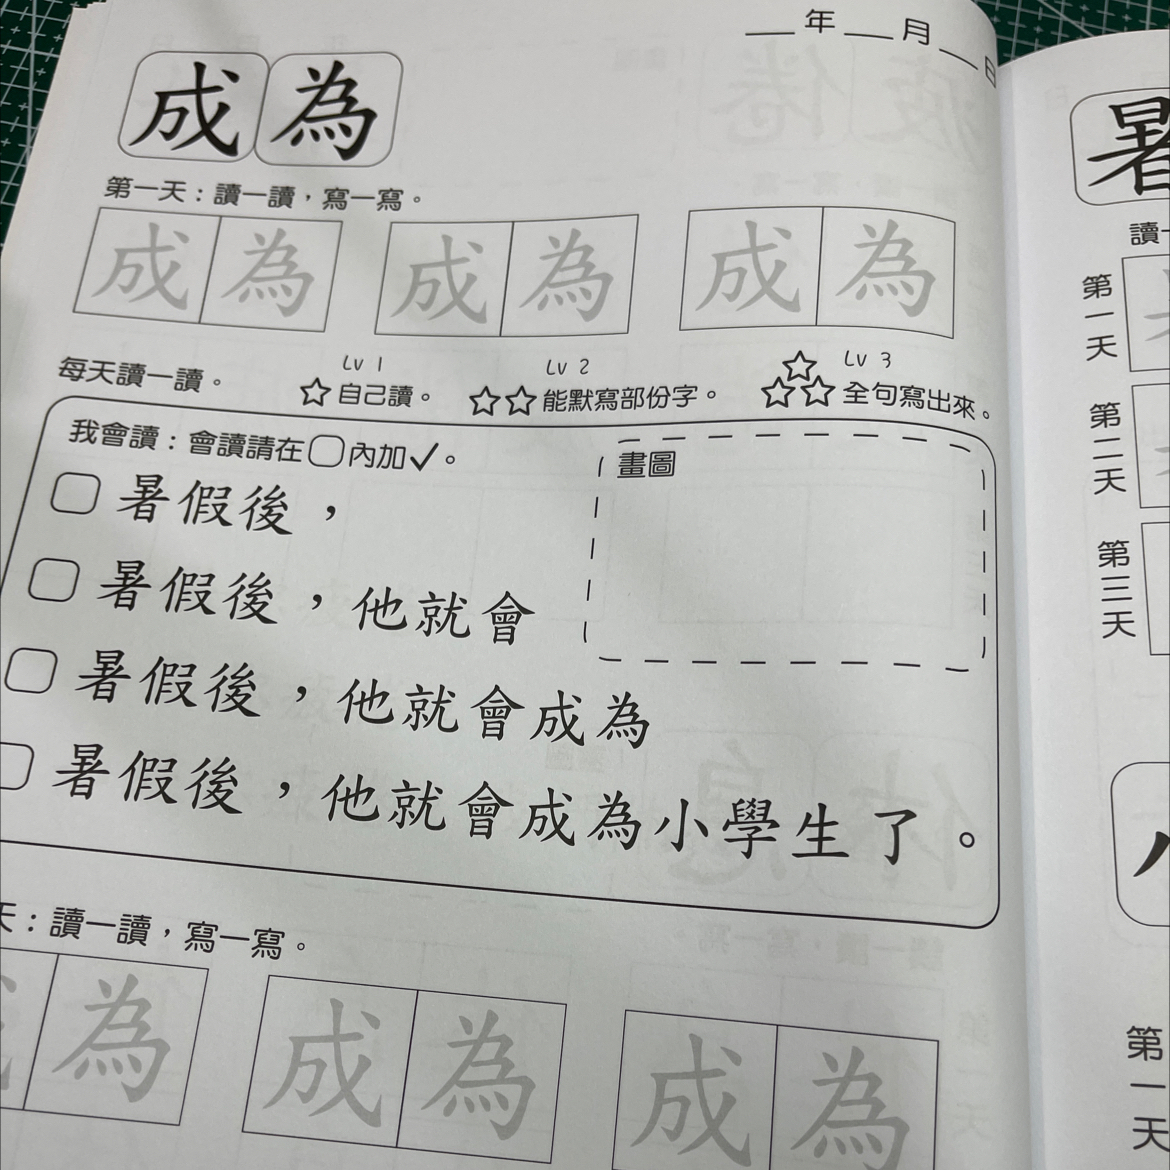 __年__月__日
成為
第一天：讀一讀，寫一寫。
成為 成為 成為
每天讀一讀。
Lv 1 Lv 2 Lv 3
☆自己讀。 ☆☆能默寫部份字。 ☆☆☆全句寫出來。
我會讀：會讀請在▢內加✓。
畫圖
暑假後，
暑假後，他就會
暑假後，他就會成為
暑假後，他就會成為小學生了。
天：讀一讀，寫一寫。
為 成為 成為
暑
讀一
第一天
第二天
第三天
第一天